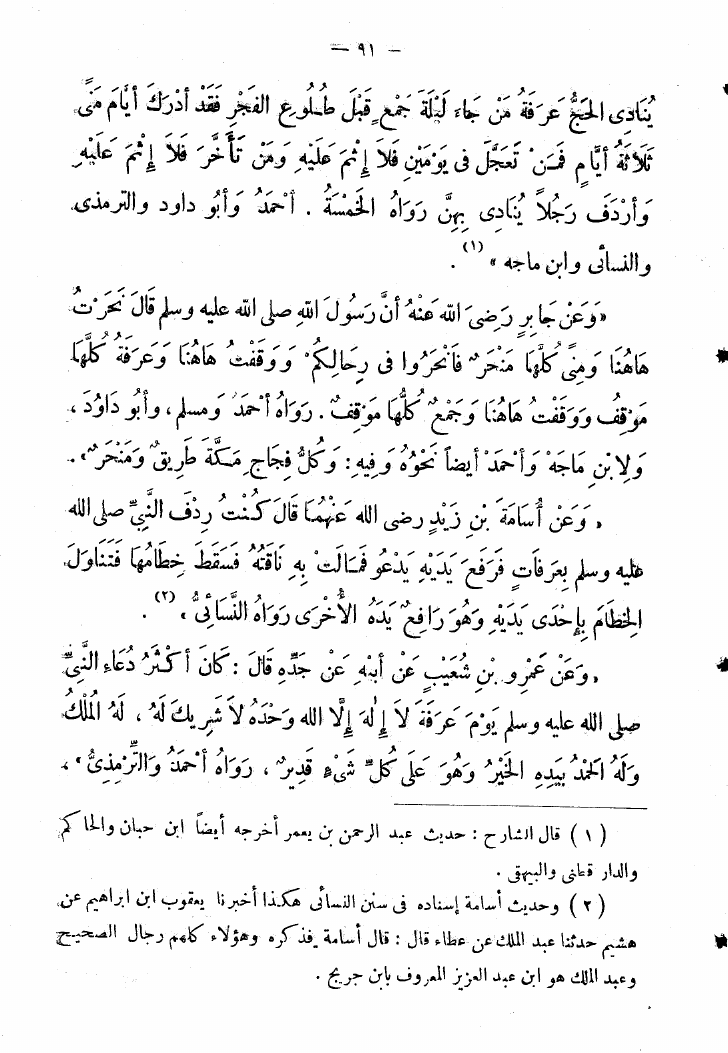 — ٩١ —
يُنَادِى الحَجُّ عَرَفَةُ مَنْ جَاءَ لَيْلَةَ جَمْعٍ قَبْلَ طُلُوعِ الفَجْرِ فَقَدْ أَدْرَكَ أَيَّامَ مِنًى
ثَلَاثَةُ أَيَّامٍ فَمَنْ تَعَجَّلَ فى يَوْمَيْنِ فَلَا إِثْمَ عَلَيْهِ وَمَنْ تَأَخَّرَ فَلَا إِثْمَ عَلَيْهِ
وَأَرْدَفَ رَجُلاً يُنَادِى بِهِنَّ رَوَاهُ الخَمْسَةُ . أَحْمَدُ وَأَبُو داود والترمذى
والنسائى وابن ماجه » (١) .
« وَعَنْ جَابِرٍ رَضِىَ اللهُ عَنْهُ أَنَّ رَسُولَ اللهِ صلى الله عليه وسلم قَالَ نَحَرْتُ
هَاهُنَا وَمِنًى كُلُّهَا مَنْحَرٌ فَانْحَرُوا فى رِحَالِكُمْ وَوَقَفْتُ هَاهُنَا وَعَرَفَةُ كُلُّهَا
مَوْقِفٌ وَوَقَفْتُ هَاهُنَا وَجَمْعٌ كُلُّهَا مَوْقِفٌ . رَوَاهُ أَحْمَدُ وَمسلم ، وأَبُو دَاوُدَ ،
وَلِابْنِ مَاجَهْ وَأَحْمَدَ أيضاً نَحْوُهُ وَفِيهِ : وَكُلُّ فِجَاجِ مَكَّةَ طَرِيقٌ وَمَنْحَرٌ » .
« وَعَنْ أُسَامَةَ بْنِ زَيْدٍ رضى الله عَنْهُمَا قَالَ كُنْتُ رِدْفَ النَّبِىِّ صلى الله
عليه وسلم بِعَرَفَاتٍ فَرَفَعَ يَدَيْهِ يَدْعُو فَمَالَتْ بِهِ نَاقَتُهُ فَسَقَطَ خِطَامُهَا فَتَنَاوَلَ
الخِطَامَ بِإِحْدَى يَدَيْهِ وَهُوَ رَافِعٌ يَدَهُ الأُخْرَى رَوَاهُ النَّسَائِىُّ » (٢) .
« وَعَنْ عَمْرِو بْنِ شُعَيْبٍ عَنْ أَبِيهِ عَنْ جَدِّهِ قَالَ : كَانَ أَكْثَرُ دُعَاءِ النَّبِىِّ
صلى الله عليه وسلم يَوْمَ عَرَفَةَ لَا إِلٰهَ إِلَّا الله وَحْدَهُ لَا شَرِيكَ لَهُ ، لَهُ المُلْكُ
وَلَهُ الحَمْدُ بِيَدِهِ الخَيْرُ وَهُوَ عَلَى كُلِّ شَىْءٍ قَدِيرٌ ، رَوَاهُ أَحْمَدُ وَالتِّرْمِذِىُّ » ،
( ١ ) قال الشارح : حديث عبد الرحمن بن يعمر أخرجه أيضاً ابن حبان والحاكم
والدار قطنى والبيهقى .
( ٢ ) وحديث أسامة إسناده فى سنن النسائى هكذا أخبرنا يعقوب ابن ابراهيم عن
هشيم حدثنا عبد الملك عن عطاء قال : قال أسامة فذكره وهؤلاء كلهم رجال الصحيح
وعبد الملك هو ابن عبد العزيز المعروف بابن جريج .